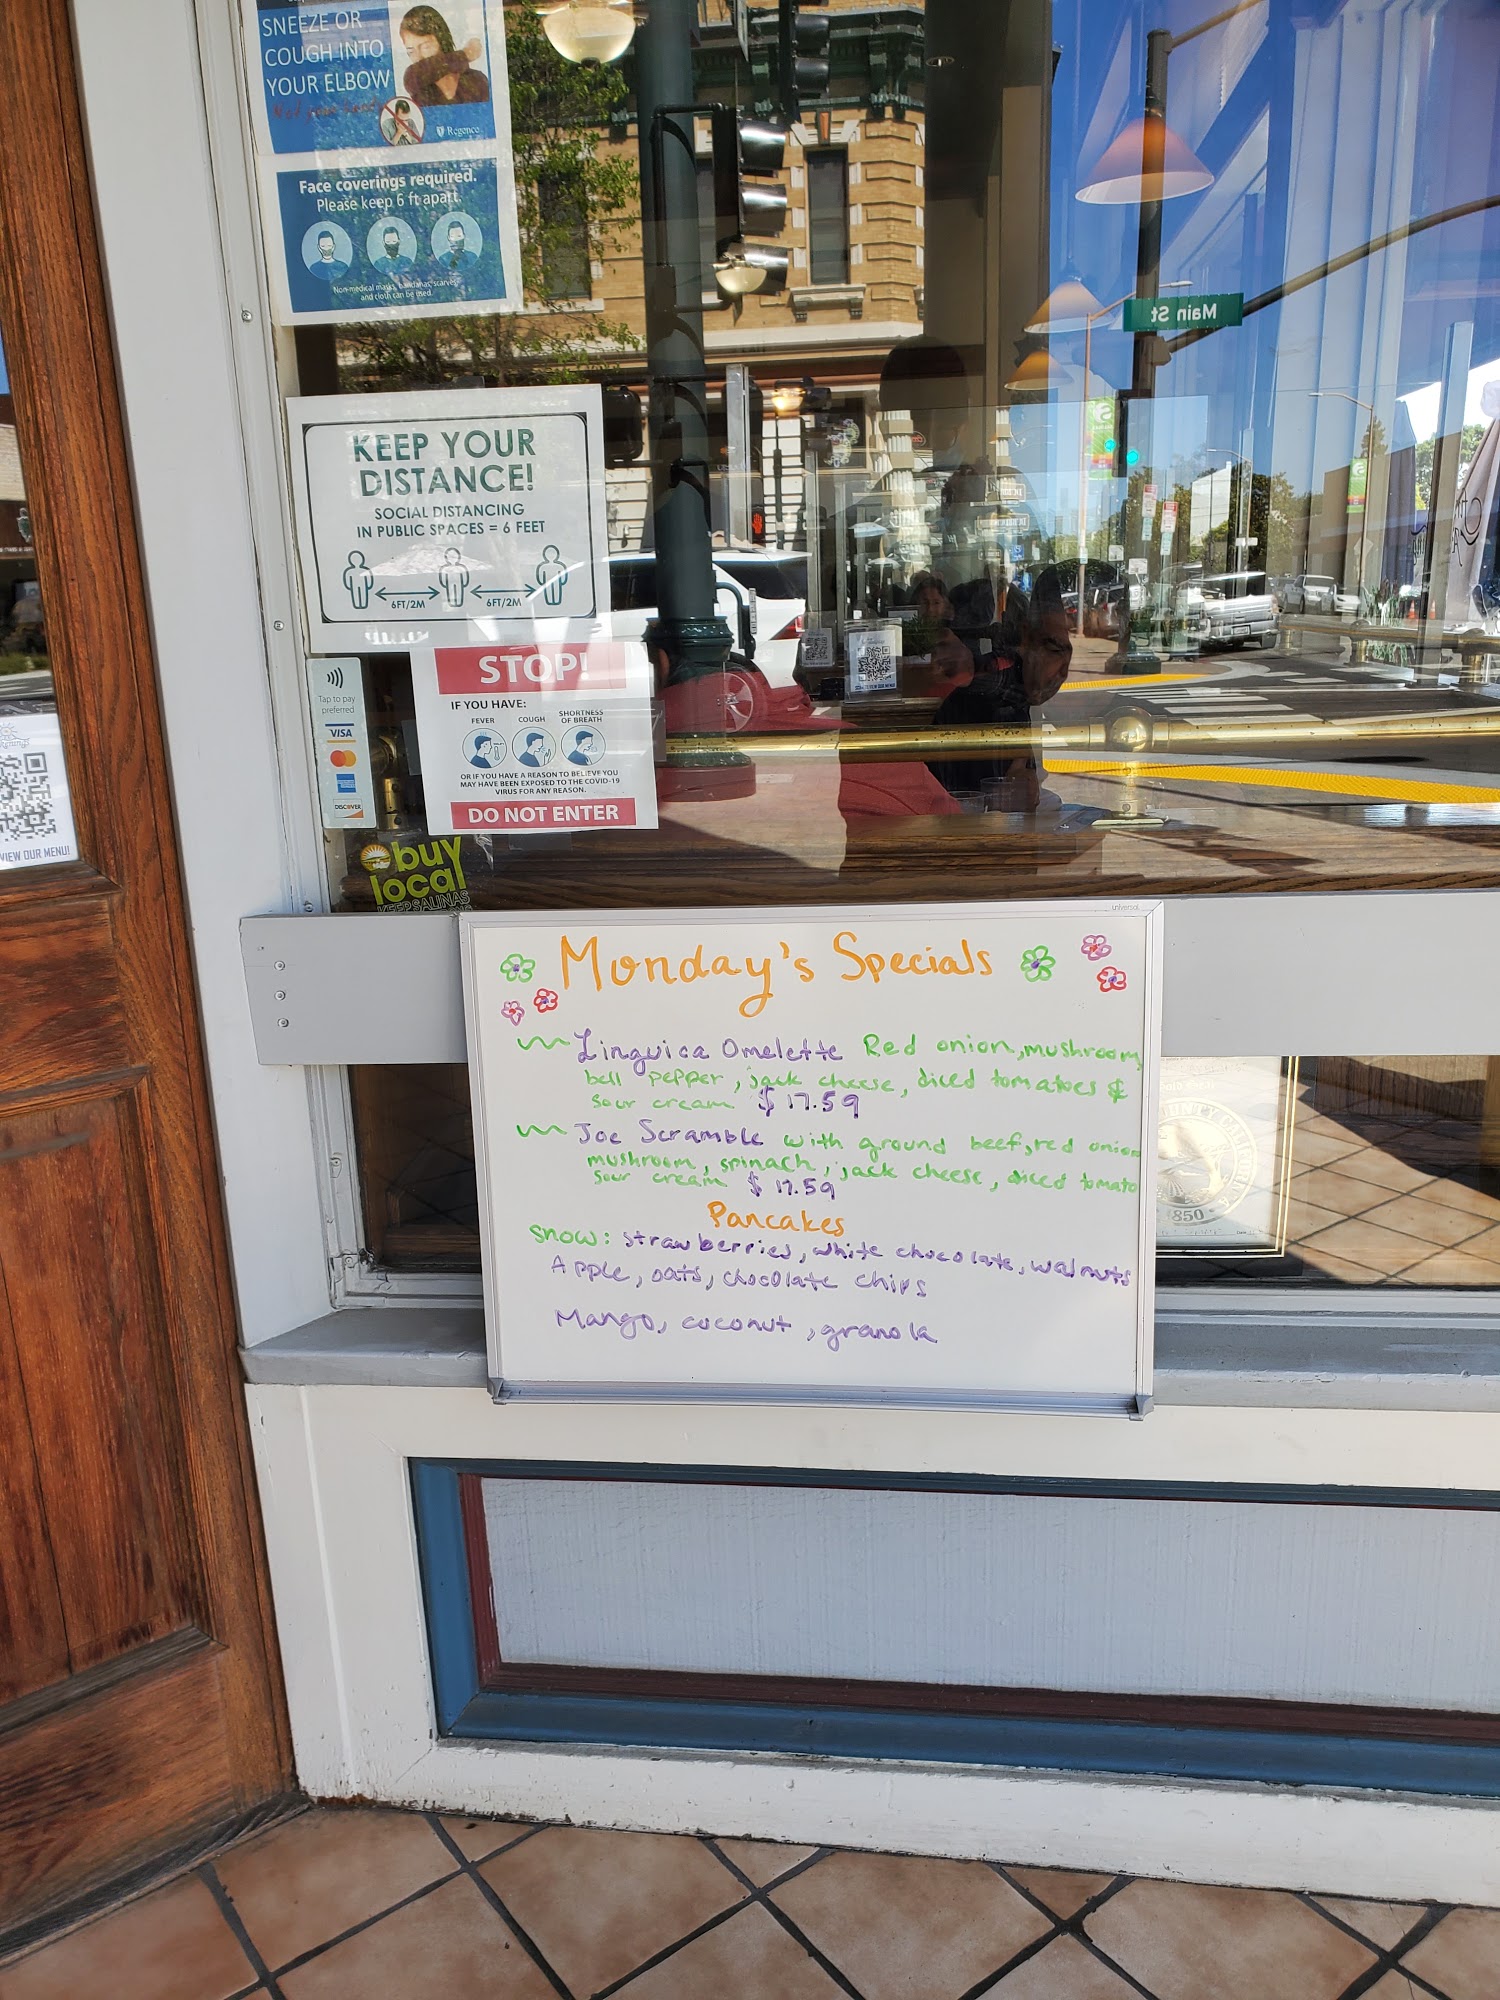 SNEEZE OR
COUGH INTO
YOUR ELBOW
Not your hands
Regence
Face coverings required.
Please keep 6 ft apart.
Non-medical masks, bandanas, scarves
and cloth can be used.
Main St
KEEP YOUR
DISTANCE!
SOCIAL DISTANCING
IN PUBLIC SPACES = 6 FEET
6FT/2M 6FT/2M
STOP!
IF YOU HAVE:
FEVER COUGH SHORTNESS OF BREATH
OR IF YOU HAVE A REASON TO BELIEVE YOU
MAY HAVE BEEN EXPOSED TO THE COVID-19
VIRUS FOR ANY REASON.
DO NOT ENTER
Tap to pay
preferred
VISA
DISCOVER
VIEW OUR MENU!
buy
local
KEEP SALINAS
universal
Monday's Specials
Linguica Omelette Red onion, mushroom,
bell pepper, jack cheese, diced tomatoes &
sour cream $17.59
Joe Scramble with ground beef, red onion
mushroom, spinach, jack cheese, diced tomato
sour cream $17.59
Pancakes
Snow: strawberries, white chocolate, walnuts
Apple, oats, chocolate chips
Mango, coconut, granola
1850